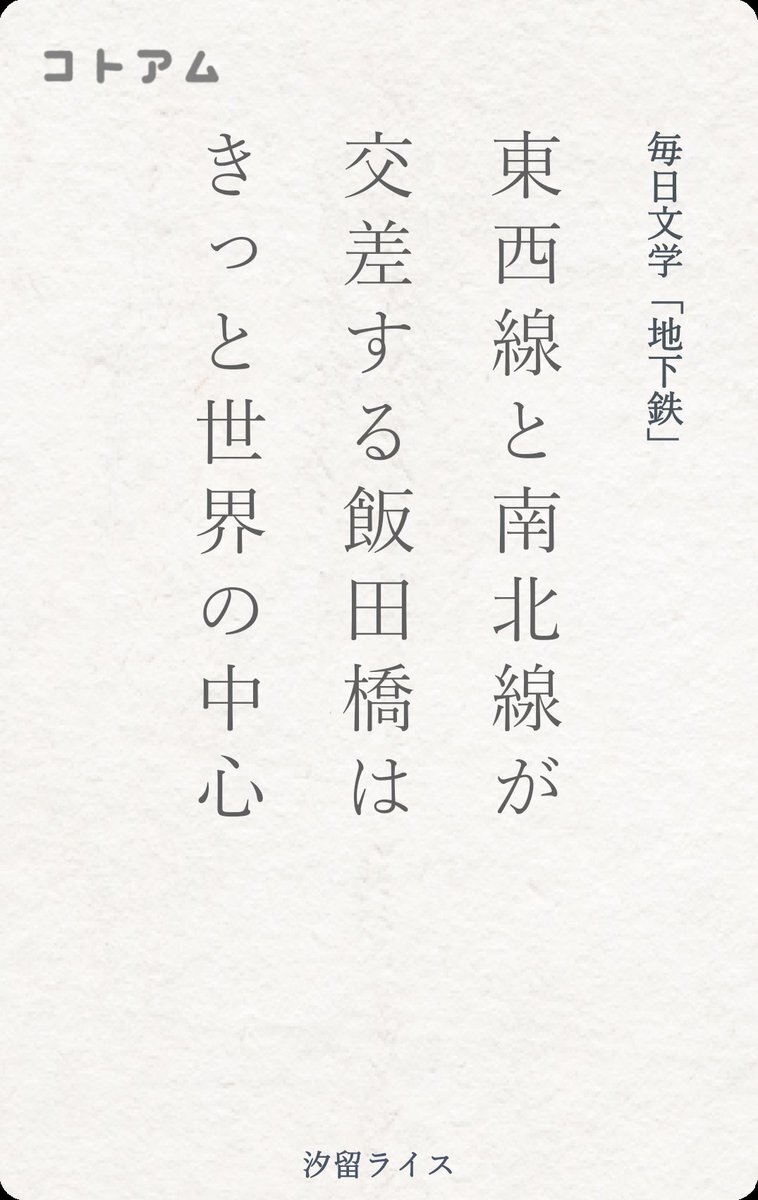 コトアム
毎日文学「地下鉄」
東西線と南北線が
交差する飯田橋は
きっと世界の中心
汐留ライス